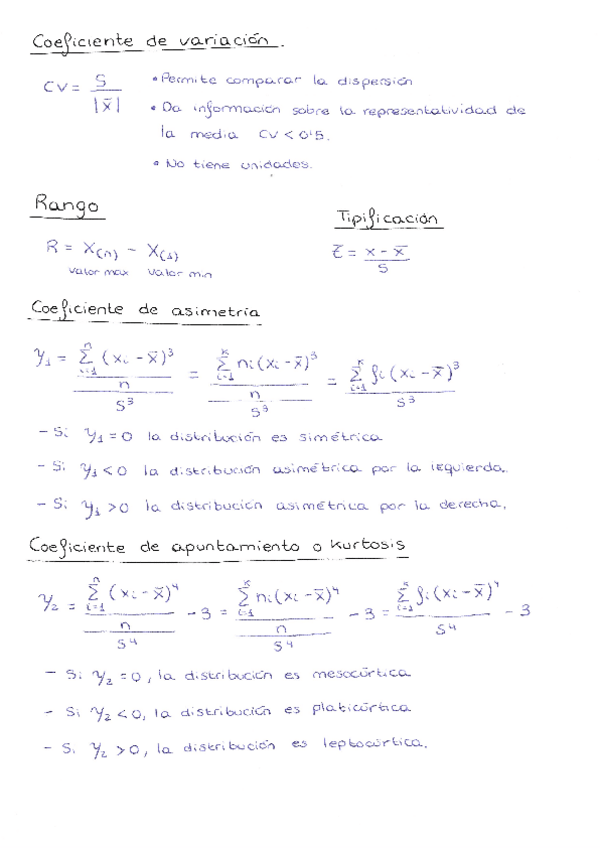 Coeficiente de variación.
CV = S / |x̄|
• Permite comparar la dispersión
• Da información sobre la representatividad de
la media CV < 0'5.
• No tiene unidades.
Rango
R = X(n) - X(1)
valor max valor min
Tipificación
Z = (x - x̄) / S
Coeficiente de asimetría
γ₁ = (Σᵢ₌₁ⁿ (xᵢ - x̄)³ / n) / S³ = (Σᵢ₌₁ᵏ nᵢ(xᵢ - x̄)³ / n) / S³ = Σᵢ₌₁ᵏ fᵢ(xᵢ - x̄)³ / S³
- Si γ₁ = 0 la distribución es simétrica
- Si γ₁ < 0 la distribución asimétrica por la izquierda.
- Si γ₁ > 0 la distribución asimétrica por la derecha.
Coeficiente de apuntamiento o Kurtosis
γ₂ = (Σᵢ₌₁ⁿ (xᵢ - x̄)⁴ / n) / S⁴ - 3 = (Σᵢ₌₁ᵏ nᵢ(xᵢ - x̄)⁴ / n) / S⁴ - 3 = Σᵢ₌₁ᵏ fᵢ(xᵢ - x̄)⁴ / S⁴ - 3
- Si γ₂ = 0, la distribución es mesocúrtica
- Si γ₂ < 0, la distribución es platicúrtica
- Si γ₂ > 0, la distribución es leptocúrtica.